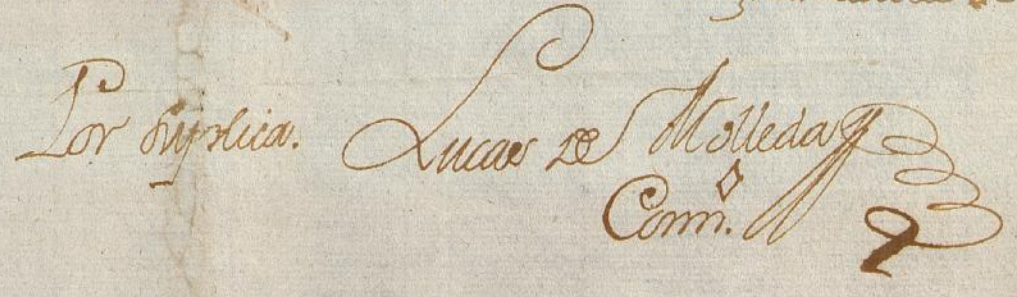 Por suplica. Lucas de Molleda
Comn.